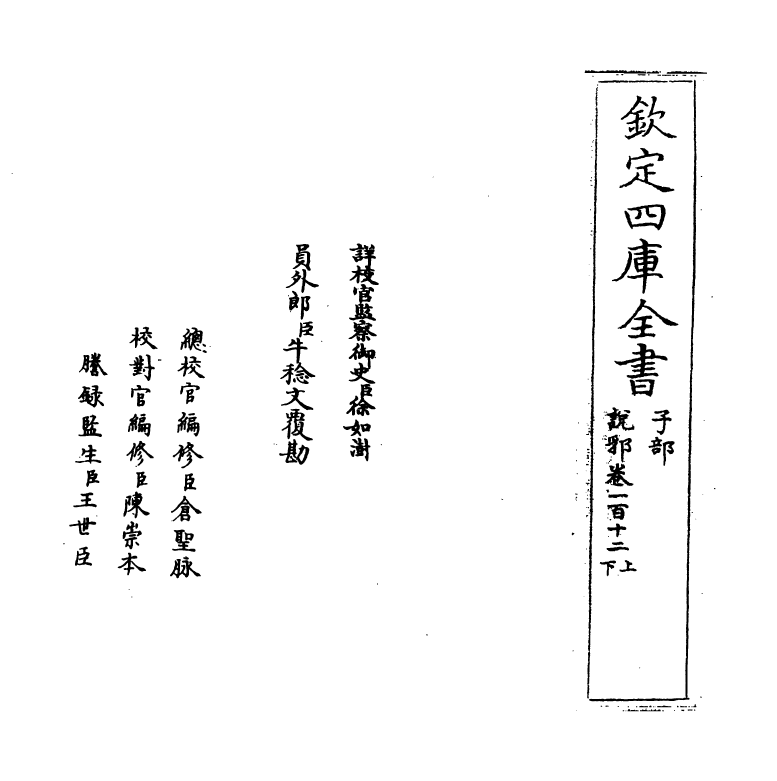 欽定四庫全書
子部
說郛卷一百十二上下
詳校官監察御史臣徐如澍
員外郎臣牛稔文覆勘
總校官編修臣倉聖脉
校對官編修臣陳崇本
謄録監生臣王世臣